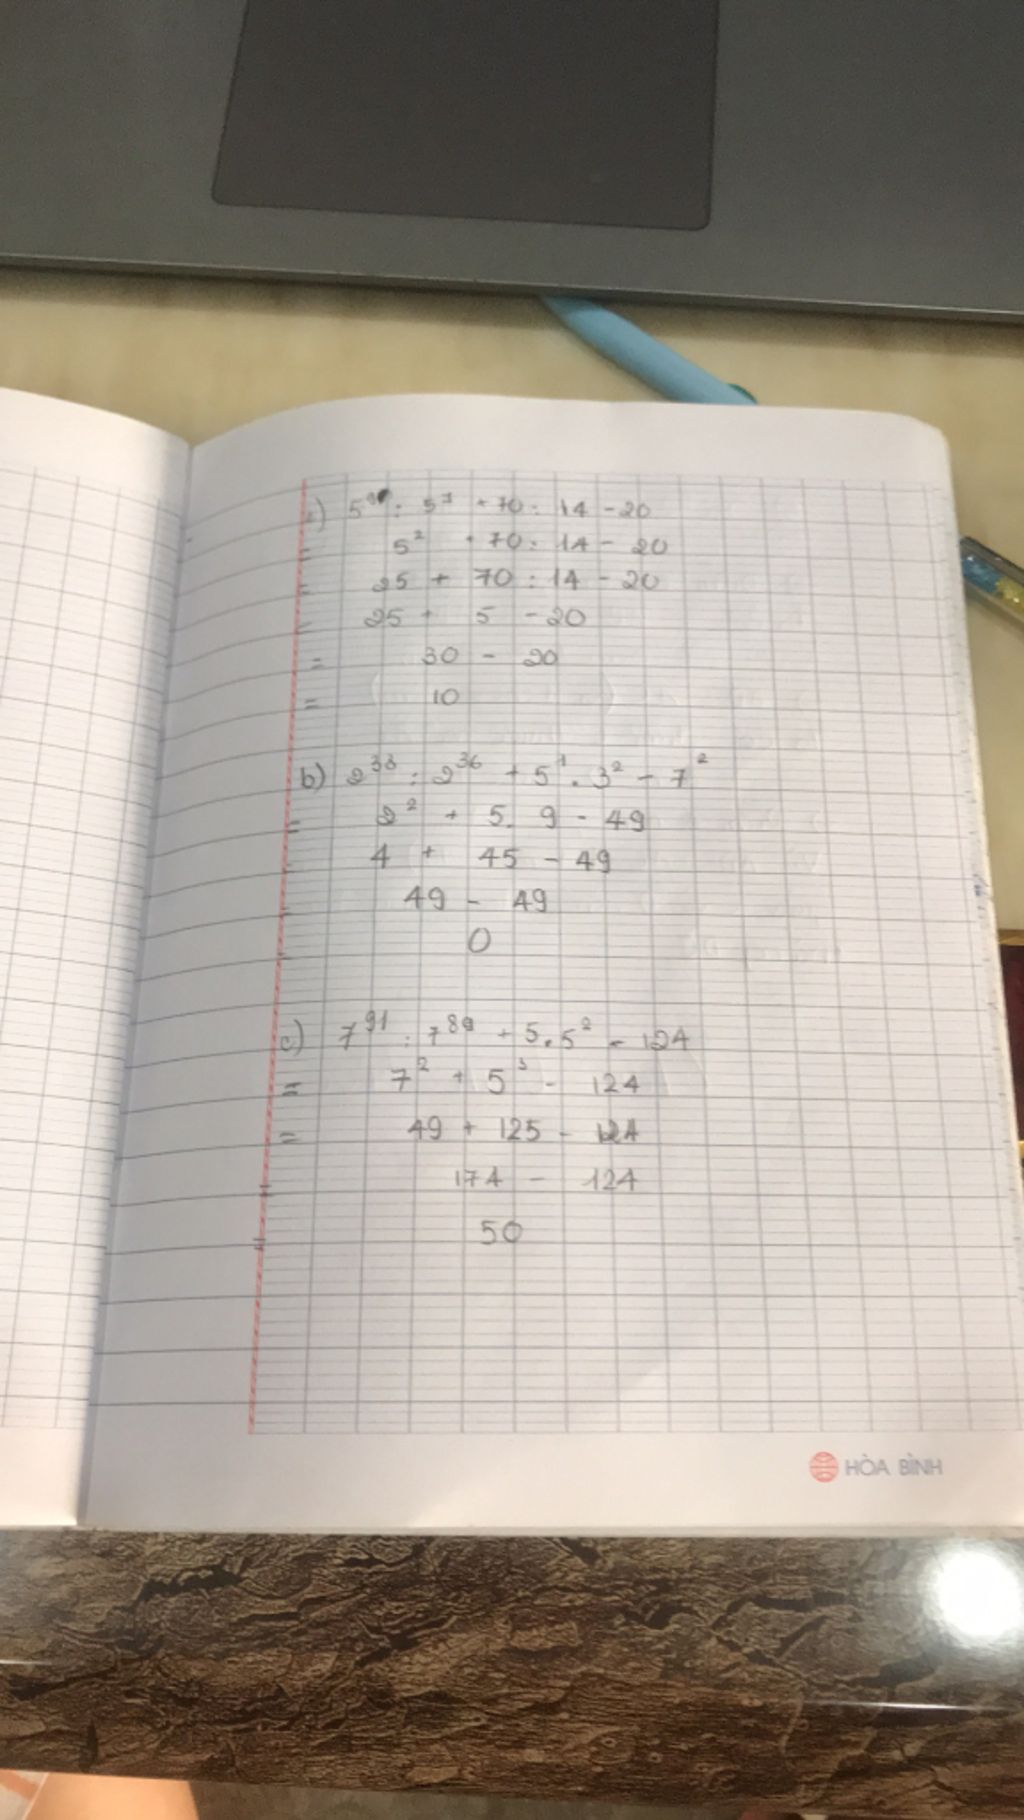 a) 5⁹ : 5⁷ + 70 : 14 - 20
= 5² + 70 : 14 - 20
= 25 + 70 : 14 - 20
= 25 + 5 - 20
= 30 - 20
= 10
b) 2³⁸ : 2³⁶ + 5¹ . 3² - 7²
= 2² + 5 . 9 - 49
= 4 + 45 - 49
= 49 - 49
= 0
c) 7⁹¹ : 7⁸⁹ + 5 . 5² - 124
= 7² + 5³ - 124
= 49 + 125 - 124
= 174 - 124
= 50
HÒA BÌNH